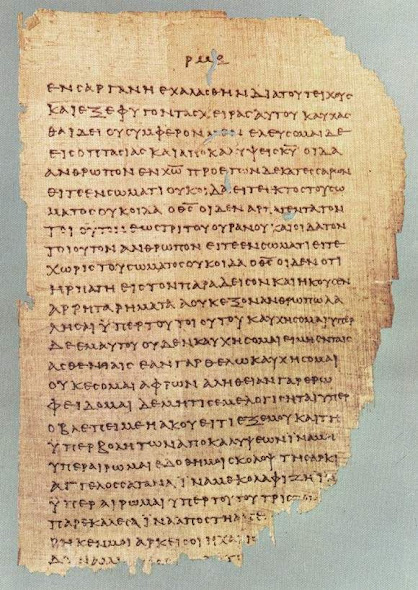 ΕΝ ΣΑΡΓΑΝΗ ΕΧΑΛΑΣΘΗΝ ΔΙΑ ΤΟΥ ΤΕΙΧΟΥΣ
ΚΑΙ ΕΞΕΦΥΓΟΝ ΤΑΣ ΧΕΙΡΑΣ ΑΥΤΟΥ ΚΑΥΧΑΣ
ΘΑΙ ΔΕΙ ΟΥ ΣΥΜΦΕΡΟΝ ΕΛΕΥΣΟΜΑΙ ΔΕ
ΕΙΣ ΟΠΤΑΣΙΑΣ ΚΑΙ ΑΠΟΚΑΛΥΨΕΙΣ Κ̅Υ̅ ΟΙΔΑ
ΑΝΘΡΩΠΟΝ ΕΝ Χ̅Ω̅ ΠΡΟ ΕΤΩΝ ΔΕΚΑΤΕΣΣΑΡΩΝ
ΕΙΤΕ ΕΝ ΣΩΜΑΤΙ ΟΥΚ ΟΙΔΑ ΕΙΤΕ ΕΚΤΟΣ ΤΟΥ ΣΩ
ΜΑΤΟΣ ΟΥΚ ΟΙΔΑ Ο Θ̅Σ̅ ΟΙΔΕΝ ΑΡΠΑΓΕΝΤΑ ΤΟΝ
ΤΟΙΟΥΤΟΝ ΕΩΣ ΤΡΙΤΟΥ ΟΥΡΑΝΟΥ ΚΑΙ ΟΙΔΑ ΤΟΝ
ΤΟΙΟΥΤΟΝ ΑΝΘΡΩΠΟΝ ΕΙΤΕ ΕΝ ΣΩΜΑΤΙ ΕΙΤΕ
ΧΩΡΙΣ ΤΟΥ ΣΩΜΑΤΟΣ ΟΥΚ ΟΙΔΑ Ο Θ̅Σ̅ ΟΙΔΕΝ ΟΤΙ
ΗΡΠΑΓΗ ΕΙΣ ΤΟΝ ΠΑΡΑΔΕΙΣΟΝ ΚΑΙ ΗΚΟΥΣΕΝ
ΑΡΡΗΤΑ ΡΗΜΑΤΑ Α ΟΥΚ ΕΞΟΝ ΑΝΘΡΩΠΩ ΛΑ
ΛΗΣΑΙ ΥΠΕΡ ΤΟΥ ΤΟΙΟΥΤΟΥ ΚΑΥΧΗΣΟΜΑΙ ΥΠΕΡ
ΔΕ ΕΜΑΥΤΟΥ ΟΥΔΕΝ ΚΑΥΧΗΣΟΜΑΙ ΕΙ ΜΗ ΕΝ ΤΑΙΣ
ΑΣΘΕΝΕΙΑΙΣ ΕΑΝ ΓΑΡ ΘΕΛΩ ΚΑΥΧΗΣΟΜΑΙ
ΟΥΚ ΕΣΟΜΑΙ ΑΦΡΩΝ ΑΛΗΘΕΙΑΝ ΓΑΡ ΕΡΩ
ΦΕΙΔΟΜΑΙ ΔΕ ΜΗ ΤΙΣ ΕΜΕ ΛΟΓΙΣΗΤΑΙ ΥΠΕΡ
Ο ΒΛΕΠΕΙ ΜΕ Η ΑΚΟΥΕΙ ΤΙ ΕΞ ΕΜΟΥ ΚΑΙ ΤΗ
ΥΠΕΡΒΟΛΗ ΤΩΝ ΑΠΟΚΑΛΥΨΕΩΝ ΙΝΑ ΜΗ
ΥΠΕΡΑΙΡΩΜΑΙ ΕΔΟΘΗ ΜΟΙ ΣΚΟΛΟΨ ΤΗ ΣΑΡΚΙ
ΑΓΓΕΛΟΣ ΣΑΤΑΝΑ ΙΝΑ ΜΕ ΚΟΛΑΦΙΖΗ ΙΝΑ
ΥΠΕΡΑΙΡΩΜΑΙ ΥΠΕΡ ΤΟΥΤΟΥ ΤΡΙΣ
ΠΑΡΕΚΑΛΕΣΑ ΙΝΑ ΑΠΟΣΤΗ
ΚΕΝ ΜΟΙ ΑΡΚΕΙ ΣΟΙ Η ΧΑΡΙΣ